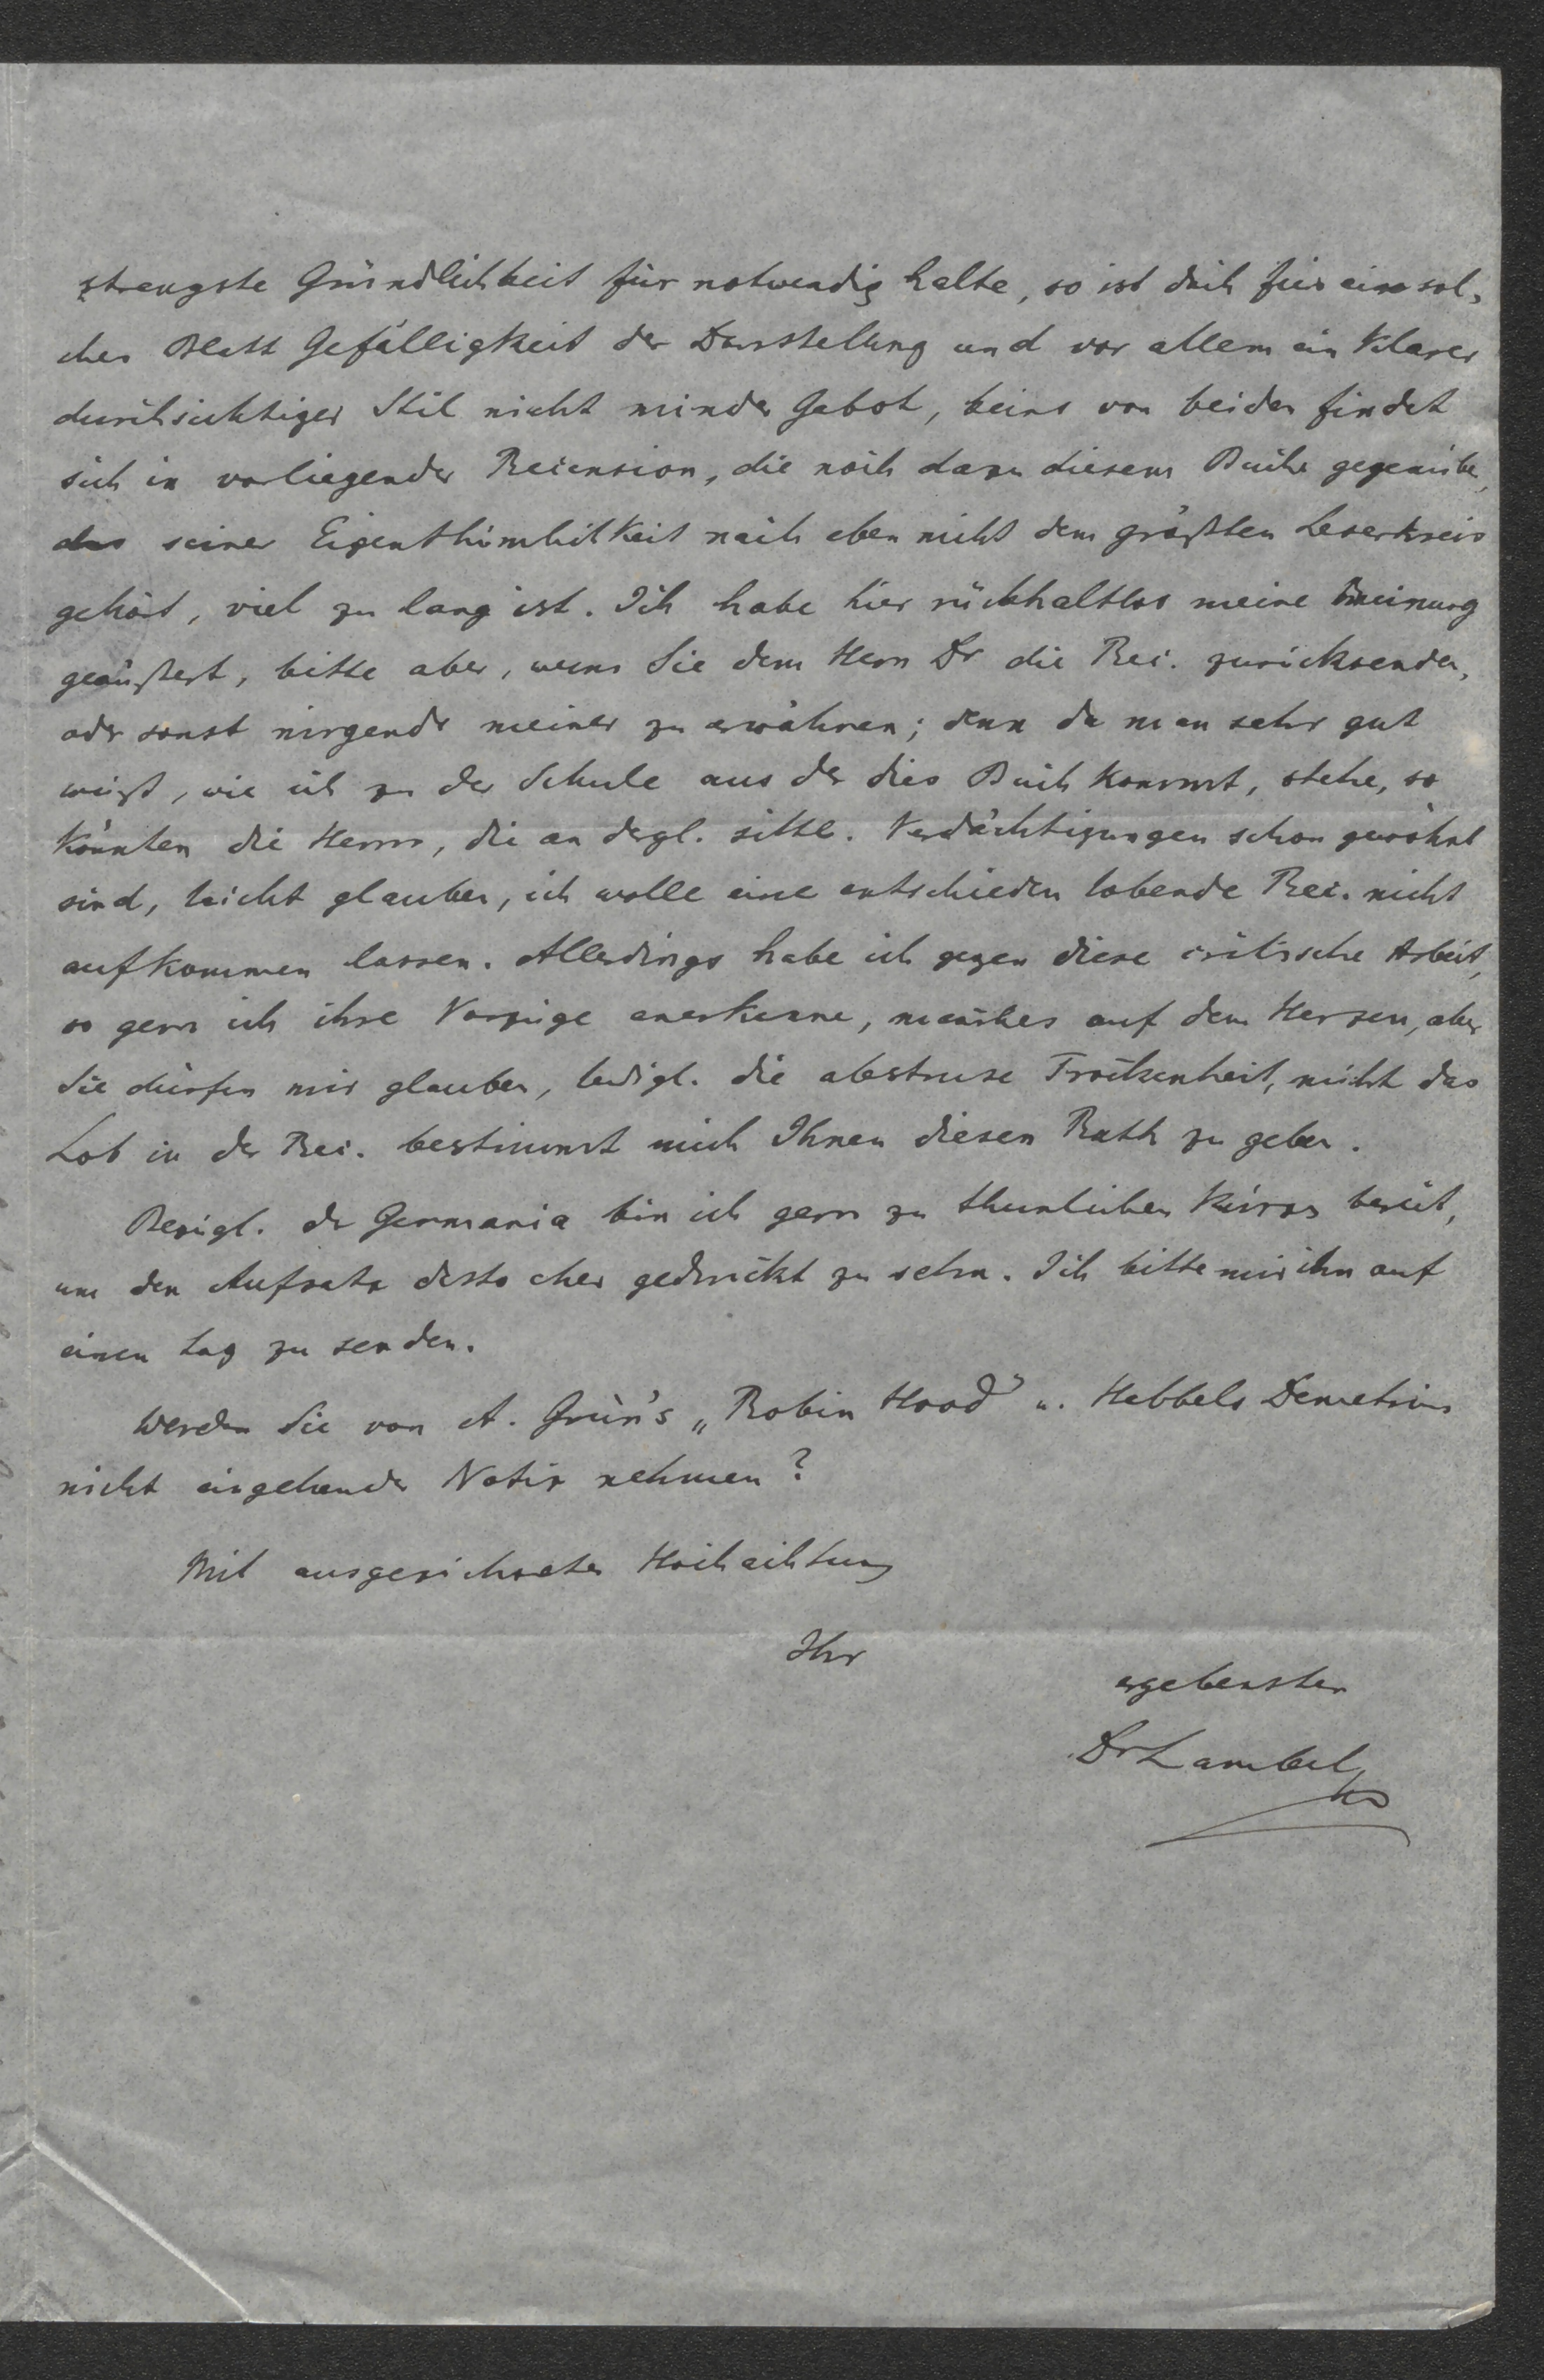 strengste Gründlichkeit für notwendig halte, so ist doch für ein sol-
ches Blatt Gefälligkeit der Darstellung und vor allem ein klarer
durchsichtiger Stil nicht minder Gebot, keins von beiden findet
sich in vorliegender Recension, die noch dazu diesem Buche gegenüber,
das seiner Eigenthümlichkeit nach eben nicht dem größten Leserkreis
gehört, viel zu lang ist. Ich habe hier rückhaltlos meine Meinung
geäußert, bitte aber, wenn Sie dem Herrn Dr die Rec. zurücksenden,
oder sonst nirgends meiner zu erwähnen; denn da man sehr gut
weiß, wie ich zu der Schule aus der dies Buch kommt, stehe, so
könnten die Herrn, die an dergl. sittl. Verdächtigungen schon gewöhnt
sind, leicht glauben, ich wolle eine entschieden lobende Rec. nicht
aufkommen lassen. Allerdings habe ich gegen diese critische Arbeit,
so gern ich ihre Vorzüge anerkenne, manches auf dem Herzen, aber
Sie dürfen mir glauben, ledigl. die abstruse Trockenheit, nicht das
Lob in der Rec. bestimmt mich Ihnen diesen Rath zu geben.
Bezügl. der Germania bin ich gern zu thunlicher Kürze bereit,
um den Aufsatz desto eher gedruckt zu sehn. Ich bitte mir ihn auf
einen Tag zu senden.
Werden Sie von A. Grün's „Robin Hood" u. Hebbels Demetrius
nicht eingehender Notiz nehmen?
Mit ausgezeichneter Hochachtung
Ihr
ergebenster
Dr Lambel